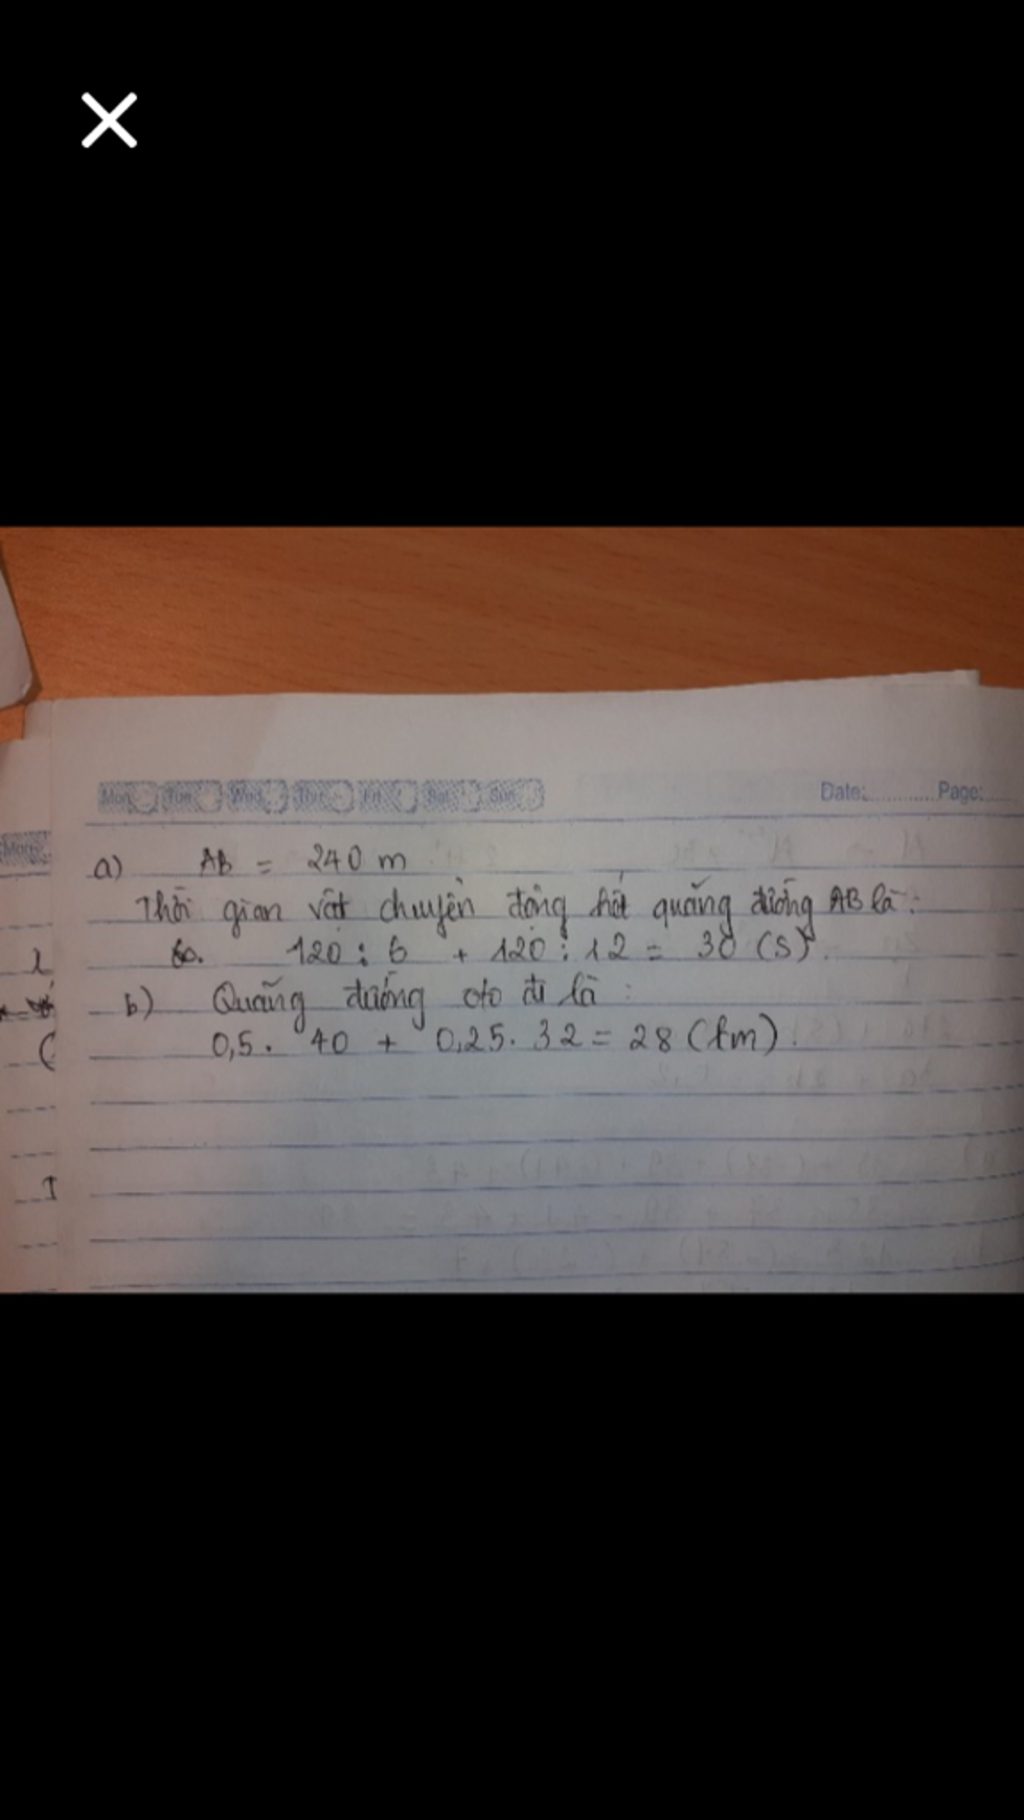 Mon Tue Wed Thr Fri Sat Sun Date:............Page:......
a) AB = 240 m
Thời gian vật chuyển động hết quãng đường AB là:
120 : 6 + 120 : 12 = 30 (s)
b) Quãng đường oto đi là :
0,5. 40 + 0,25. 32 = 28 (km).